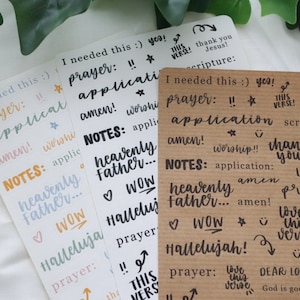 needed this :)
prayer:
applical
amen!
worship
NOTES:
appli
heavenly
Father...
WOW
Hallelujah
prayer:
I needed this :) yes!
THIS VERSE!
thank you Jesus!
prayer: !!
scripture:
application
amen!
worship!!
NOTES: application:
heavenly
Father...
WOW
Hallelujah
prayer:
!! THIS VERSE!
I needed this :) yes!
THIS VERSE!
prayer: !!
application
scr
amen! worship!!
than
you
NOTES: application:
heavenly amen
Father... amen!
WOW
Hallelujah!
prayer: love this verse
DEAR LO
!! THIS VERSE!
God is goo